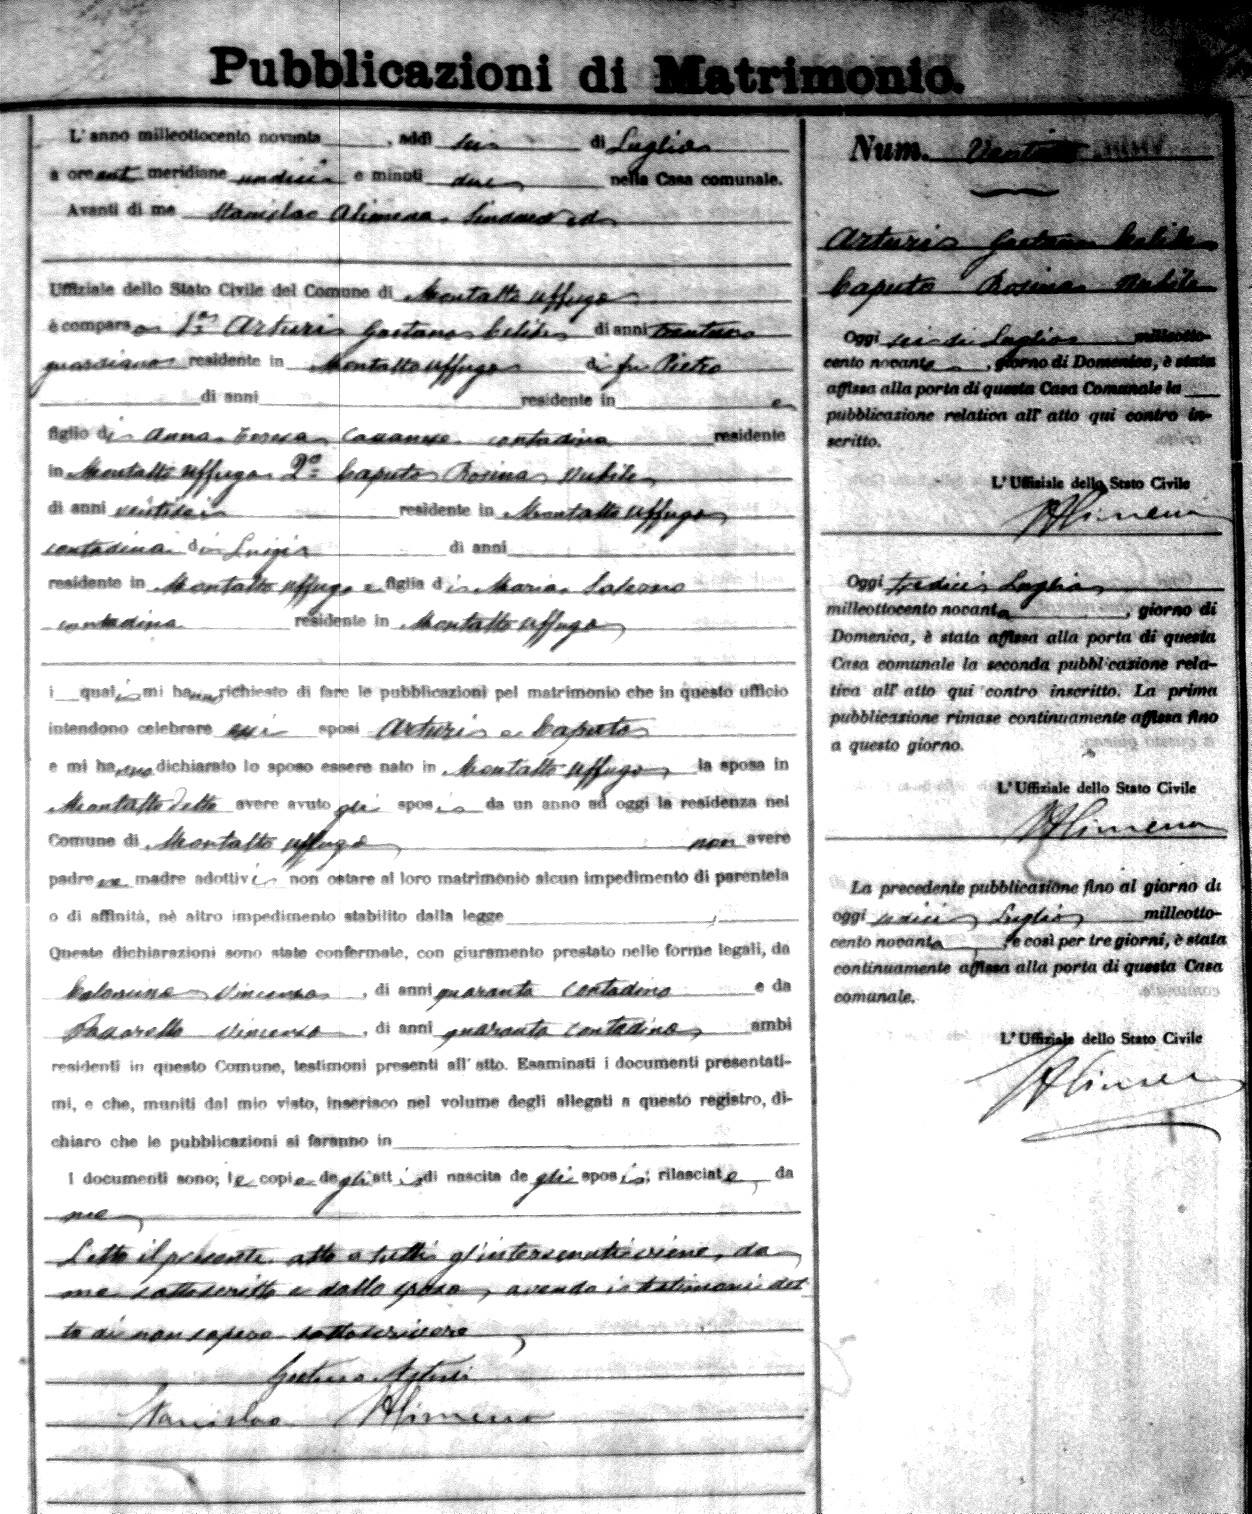 Pubblicazioni di Matrimonio.
L' anno milleottocento novanta, addì sei di Luglio
a ore ant meridiane undici e minuti due nella Casa comunale.
Avanti di me Stanislao Alimena Sindaco ed
Uffiziale dello Stato Civile del Comune di Montalto Uffugo
è compars 1° Arturi Gaetano Celibe di anni
guardiano residente in Montalto Uffugo di fu Pietro
di anni residente in e
figlio di Anna Teresa contadina residente
in Montalto Uffugo 2° Caputo Rosina Nubile
di anni ventisei residente in Montalto Uffugo
contadina di Luigi di anni
residente in Montalto Uffugo e figlia di Maria Salerno
contadina residente in Montalto Uffugo
i quali mi hanno richiesto di fare le pubblicazioni pel matrimonio che in questo ufficio
intendono celebrare essi sposi Arturi e Caputo
e mi hanno dichiarato lo sposo essere nato in Montalto Uffugo la sposa in
Montalto detto avere avuto gli sposi da un anno ad oggi la residenza nel
Comune di Montalto Uffugo non avere
padre ne madre adottivi non ostare al loro matrimonio alcun impedimento di parentela
o di affinità, nè altro impedimento stabilito dalla legge
Queste dichiarazioni sono state confermate, con giuramento prestato nelle forme legali, da
Vincenzo, di anni quaranta contadino e da
Vincenzo, di anni quaranta contadino ambi
residenti in questo Comune, testimoni presenti all' atto. Esaminati i documenti presentati-
mi, e che, muniti dal mio visto, inserisco nel volume degli allegati a questo registro, di-
chiaro che le pubblicazioni si faranno in
I documenti sono; le copie degli atti di nascita degli sposi; rilasciate da
me
Letto il presente atto a tutti gl'intervenuti viene da
me sottoscritto e dallo sposo, avendo i testimoni det
to di non sapere sottoscrivere
Gaetano Arturi
Stanislao Alimena
Num. Venti
Arturi Gaetano Celibe
Caputo Rosina Nubile
Oggi sei di Luglio milleotto-
cento novanta, giorno di Domenica, è stata
affissa alla porta di questa Casa Comunale la
pubblicazione relativa all' atto qui contro in-
scritto.
L' Uffiziale dello Stato Civile
SAlimena
Oggi tredici Luglio
milleottocento novanta, giorno di
Domenica, è stata affissa alla porta di questa
Casa comunale la seconda pubbl cazione rela-
tiva all' atto qui contro inscritto. La prima
pubblicazione rimase continuamente affissa fino
a questo giorno.
L' Uffiziale dello Stato Civile
SAlimena
La precedente pubblicazione fino al giorno di
oggi sedici Luglio milleotto-
cento novanta, e così per tre giorni, è stata
continuamente affissa alla porta di questa Casa
comunale.
L' Uffiziale dello Stato Civile
SAlimena